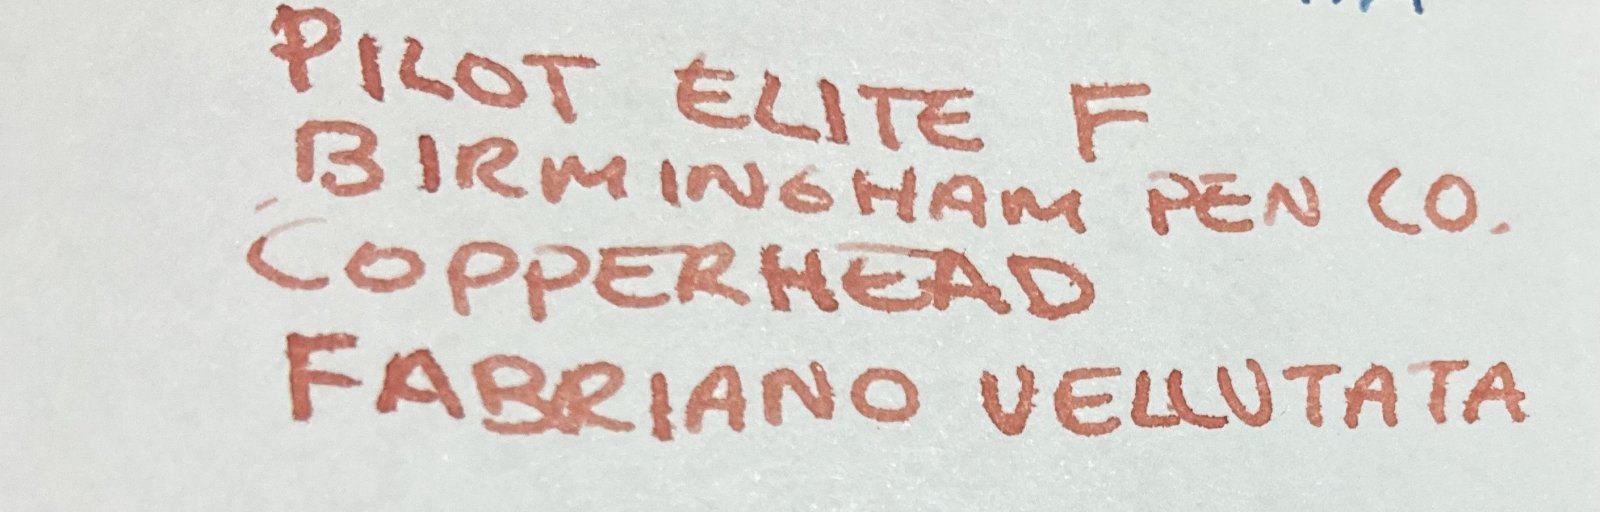 PILOT ELITE F
BIRMINGHAM PEN CO.
COPPERHEAD
FABRIANO VELLUTATA